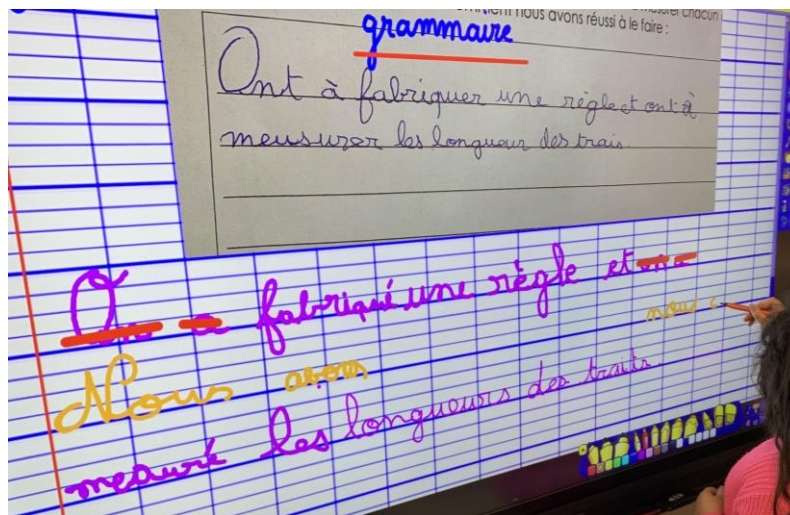 nous avons réussi à le faire :
grammaire
Ont à fabriquer une règle et ont à
meusurer les longueur des trais.
On a fabriqué une règle et on a
Nous avons
nous a
mesuré les longueurs des traits.